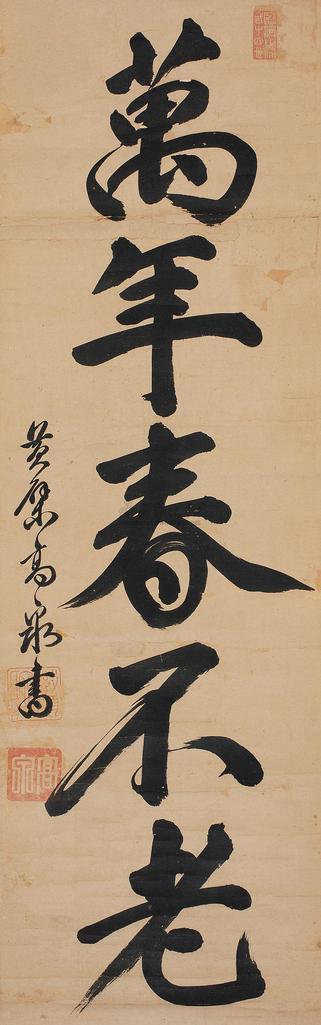 萬年春不老
黄檗高泉書